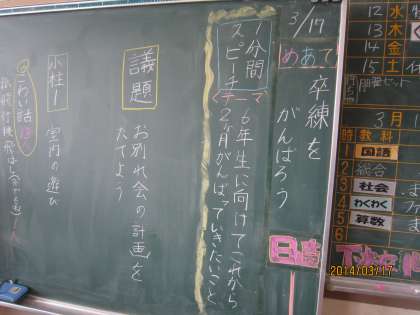 3/17
めあて
卒練を
がんばろう
日直
1分間
スピーチ
<テーマ>
6年生に向けてこれから
2ヶ月がんばっていきたいこと
議題
お別れ会の計画を
たてよう
小柱1
室内の遊び
こわい話
12 水
13 木
14 金
15 土
3月1
時 教科
1 国語
2 総合
3 社会
4 わくわく
5 算数
6
2014/03/17